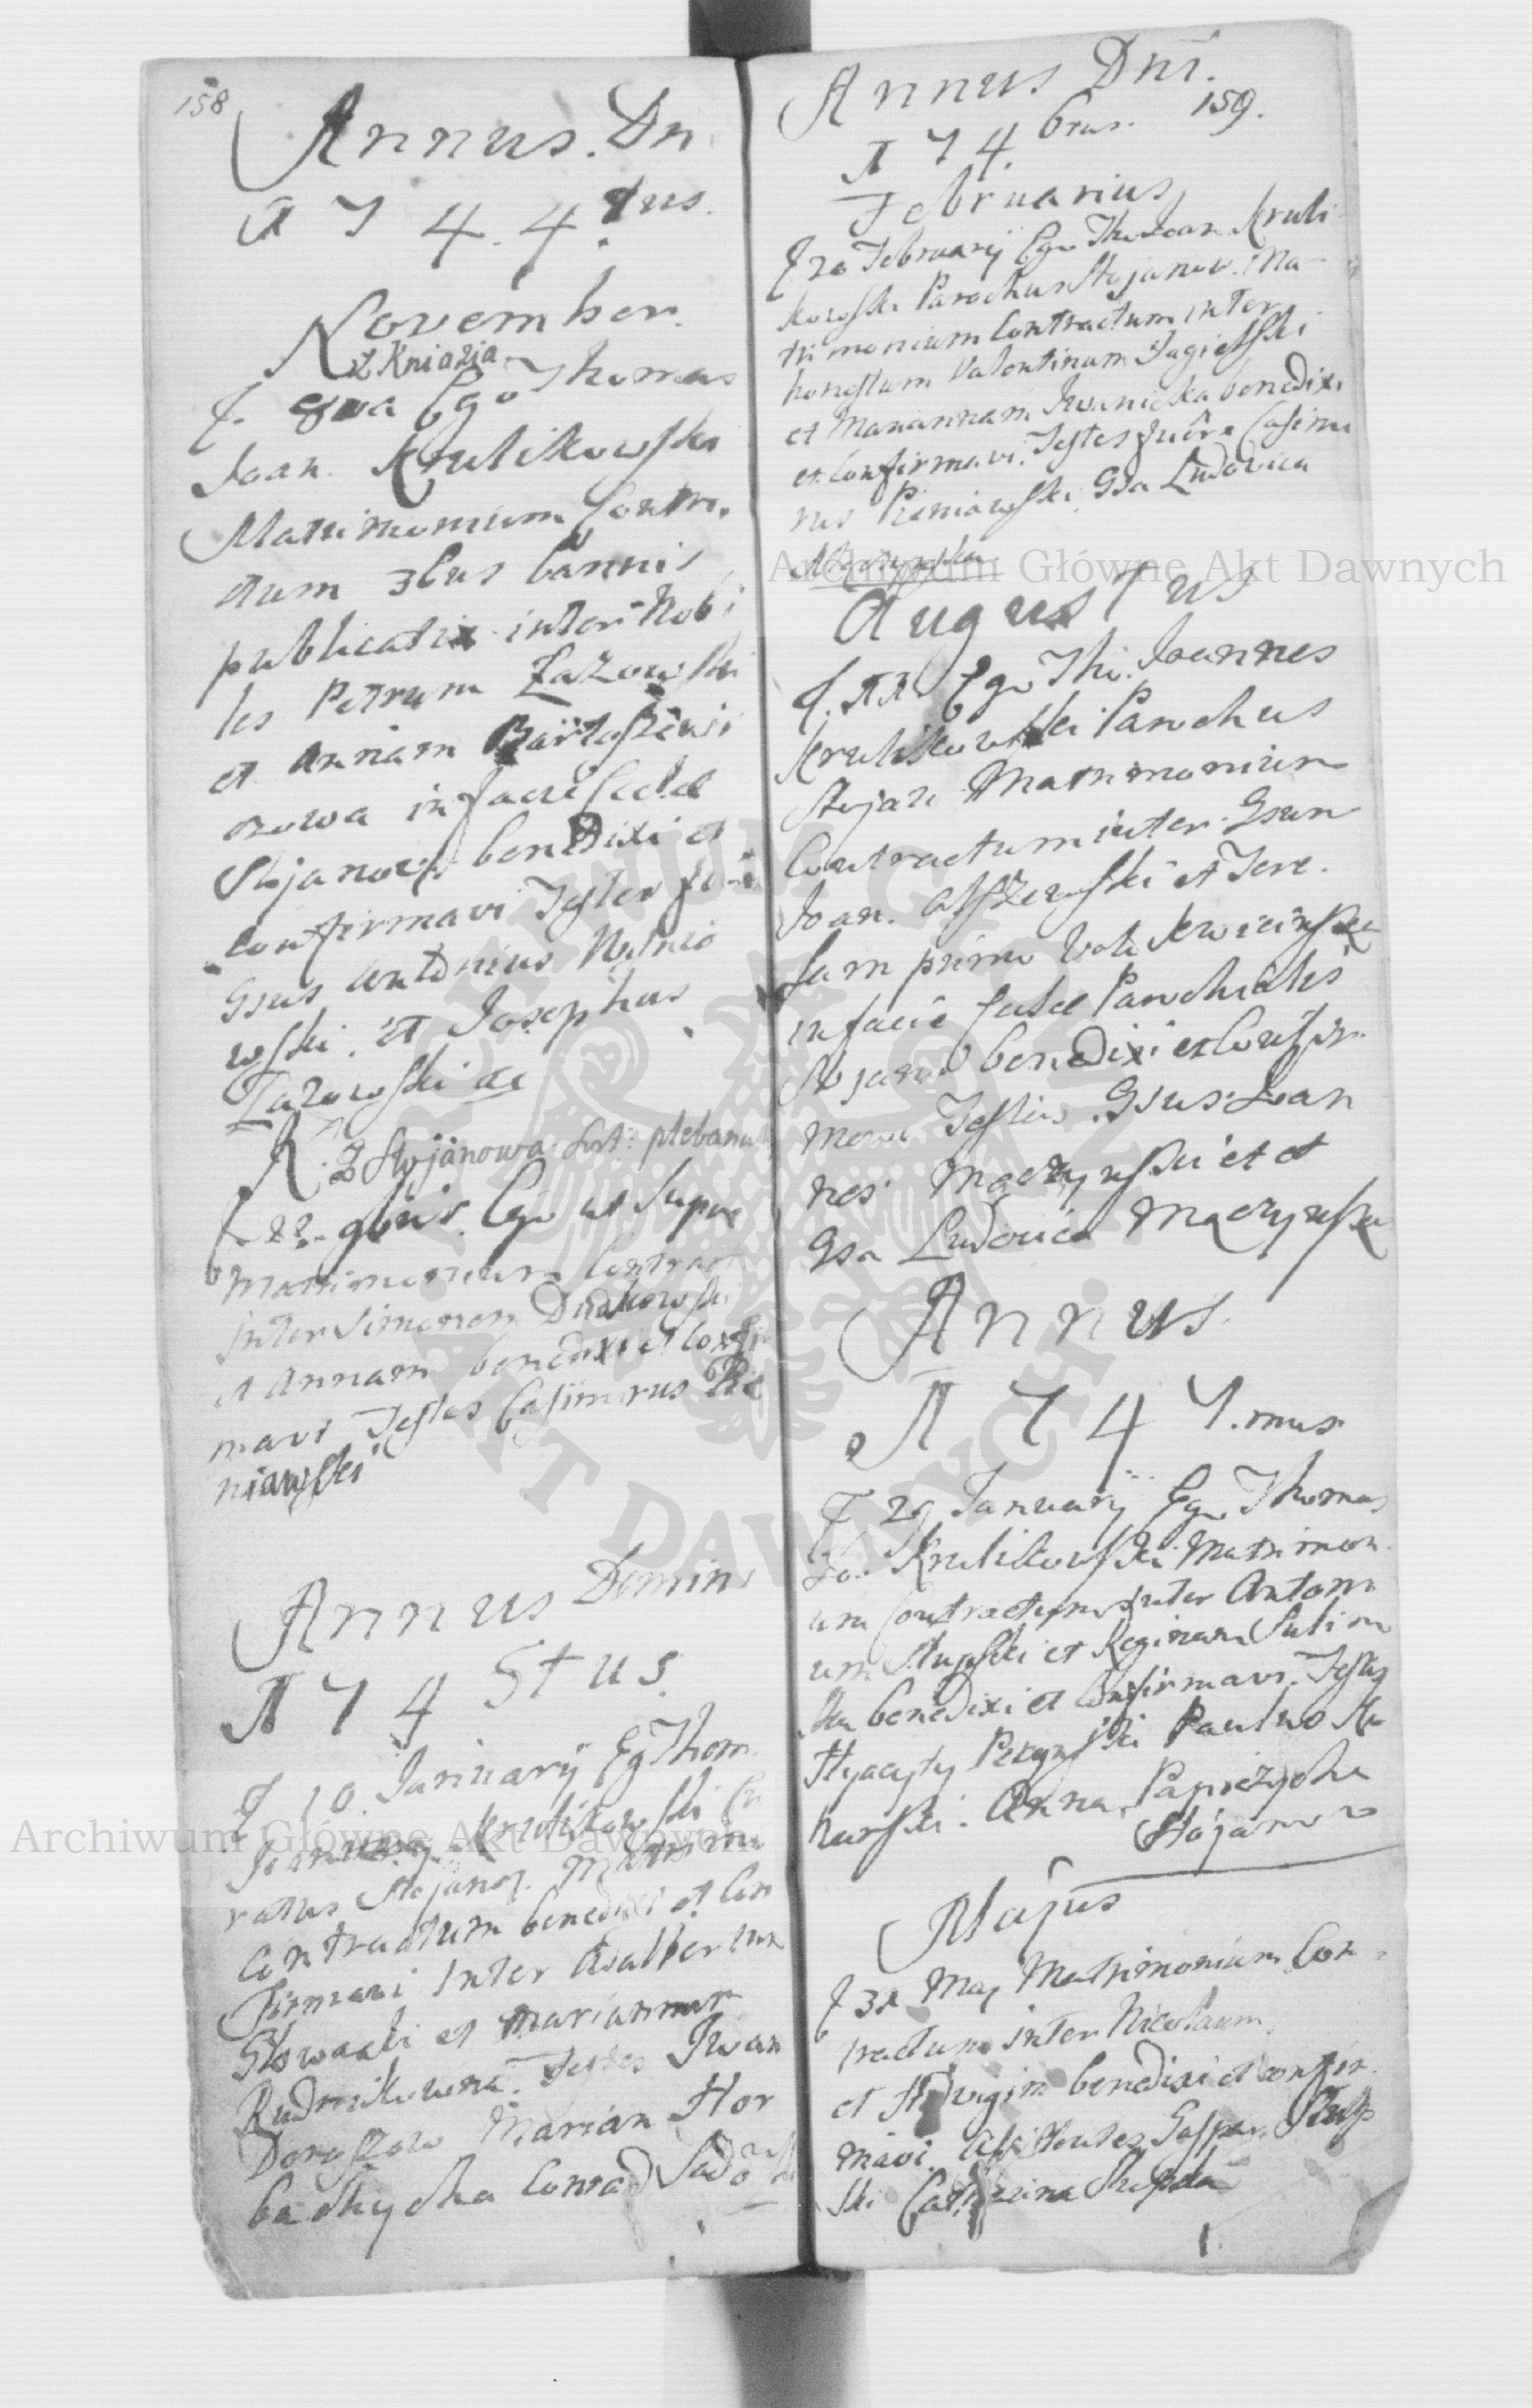 158
Annus. Dn
1744.tus.
November.
z Kniazia
Ego Thomas
Joan. Krulikowski
Matrimonium Contra
ctum 3bus bannis
publicatis inter Nobi
les Petrum Zazowski
et Annam Bartoszewi
czowa in facie Eccles
Stojanow benedixi et
confirmavi Testes
Gsus Antonius
wski et Josephus
Zazowski
Z Stojanowa plebanus
22 9bris Ego ut Supra
Matrimonium Contract
inter Simonem Dudkowski
et Annam benedixi et Confir
mavi Testes Casimirus Pie
niawski
Annus Domini
1745tus
10 Januarij Eg Thom
Krulikowski Cu
ratus Stojanov. Matrimo
Contractum benedixi et Con
firmavi Inter Adalbertum
et Mariannam
Rudnikowna. Testes Iwan
Doroszow Marian Hor
Conrad
Annus Dni.
159.
174.6tus.
Februarius
20 Februarij Ego Tho Joan Kruli
kowski Parochus Stojanow. Ma
trimonium Contractum inter
honestum Valentinum Jagielski
et Mariannam Iwanicka benedixi
et Confirmavi. Testes fuere Casimi
rus Pieniawski, Gsa Ludovica
Augustus
Ego Tho. Joannes
Krulikowski Parochus
Stojan Matrimonium
Contractum inter. Gsum
Joan. Olszewski et Tere.
sam primo Voto Kwicinska
in facie Eccles Parochialis
Stojano benedixi et Confir
mavi Testes. Gsus Joan
nes Mączynski et
Gsa Ludovica Mączynska
Annus.
1747.mus
29 January Ego Thomas
Jo. Krulikowski Matrimon
um Contractum inter Antoni
um Slupski et Reginam Sulim
ska benedixi et Confirmavi. Testes
Hyacynty Paulus Ku
harski. Anna
Stojanow
Majus
31 Maj Matrimonium Con
tractum inter Nicolaum,
et Hedvigim benedixi et confir.
mavi. Assistentes Gaspar Slup
ski Catherina Slupska
Archiwum Główne Akt Dawnych
Archiwum Główne Akt Dawnych
ARCHIWUM GŁÓWNE AKT DAWNYCH